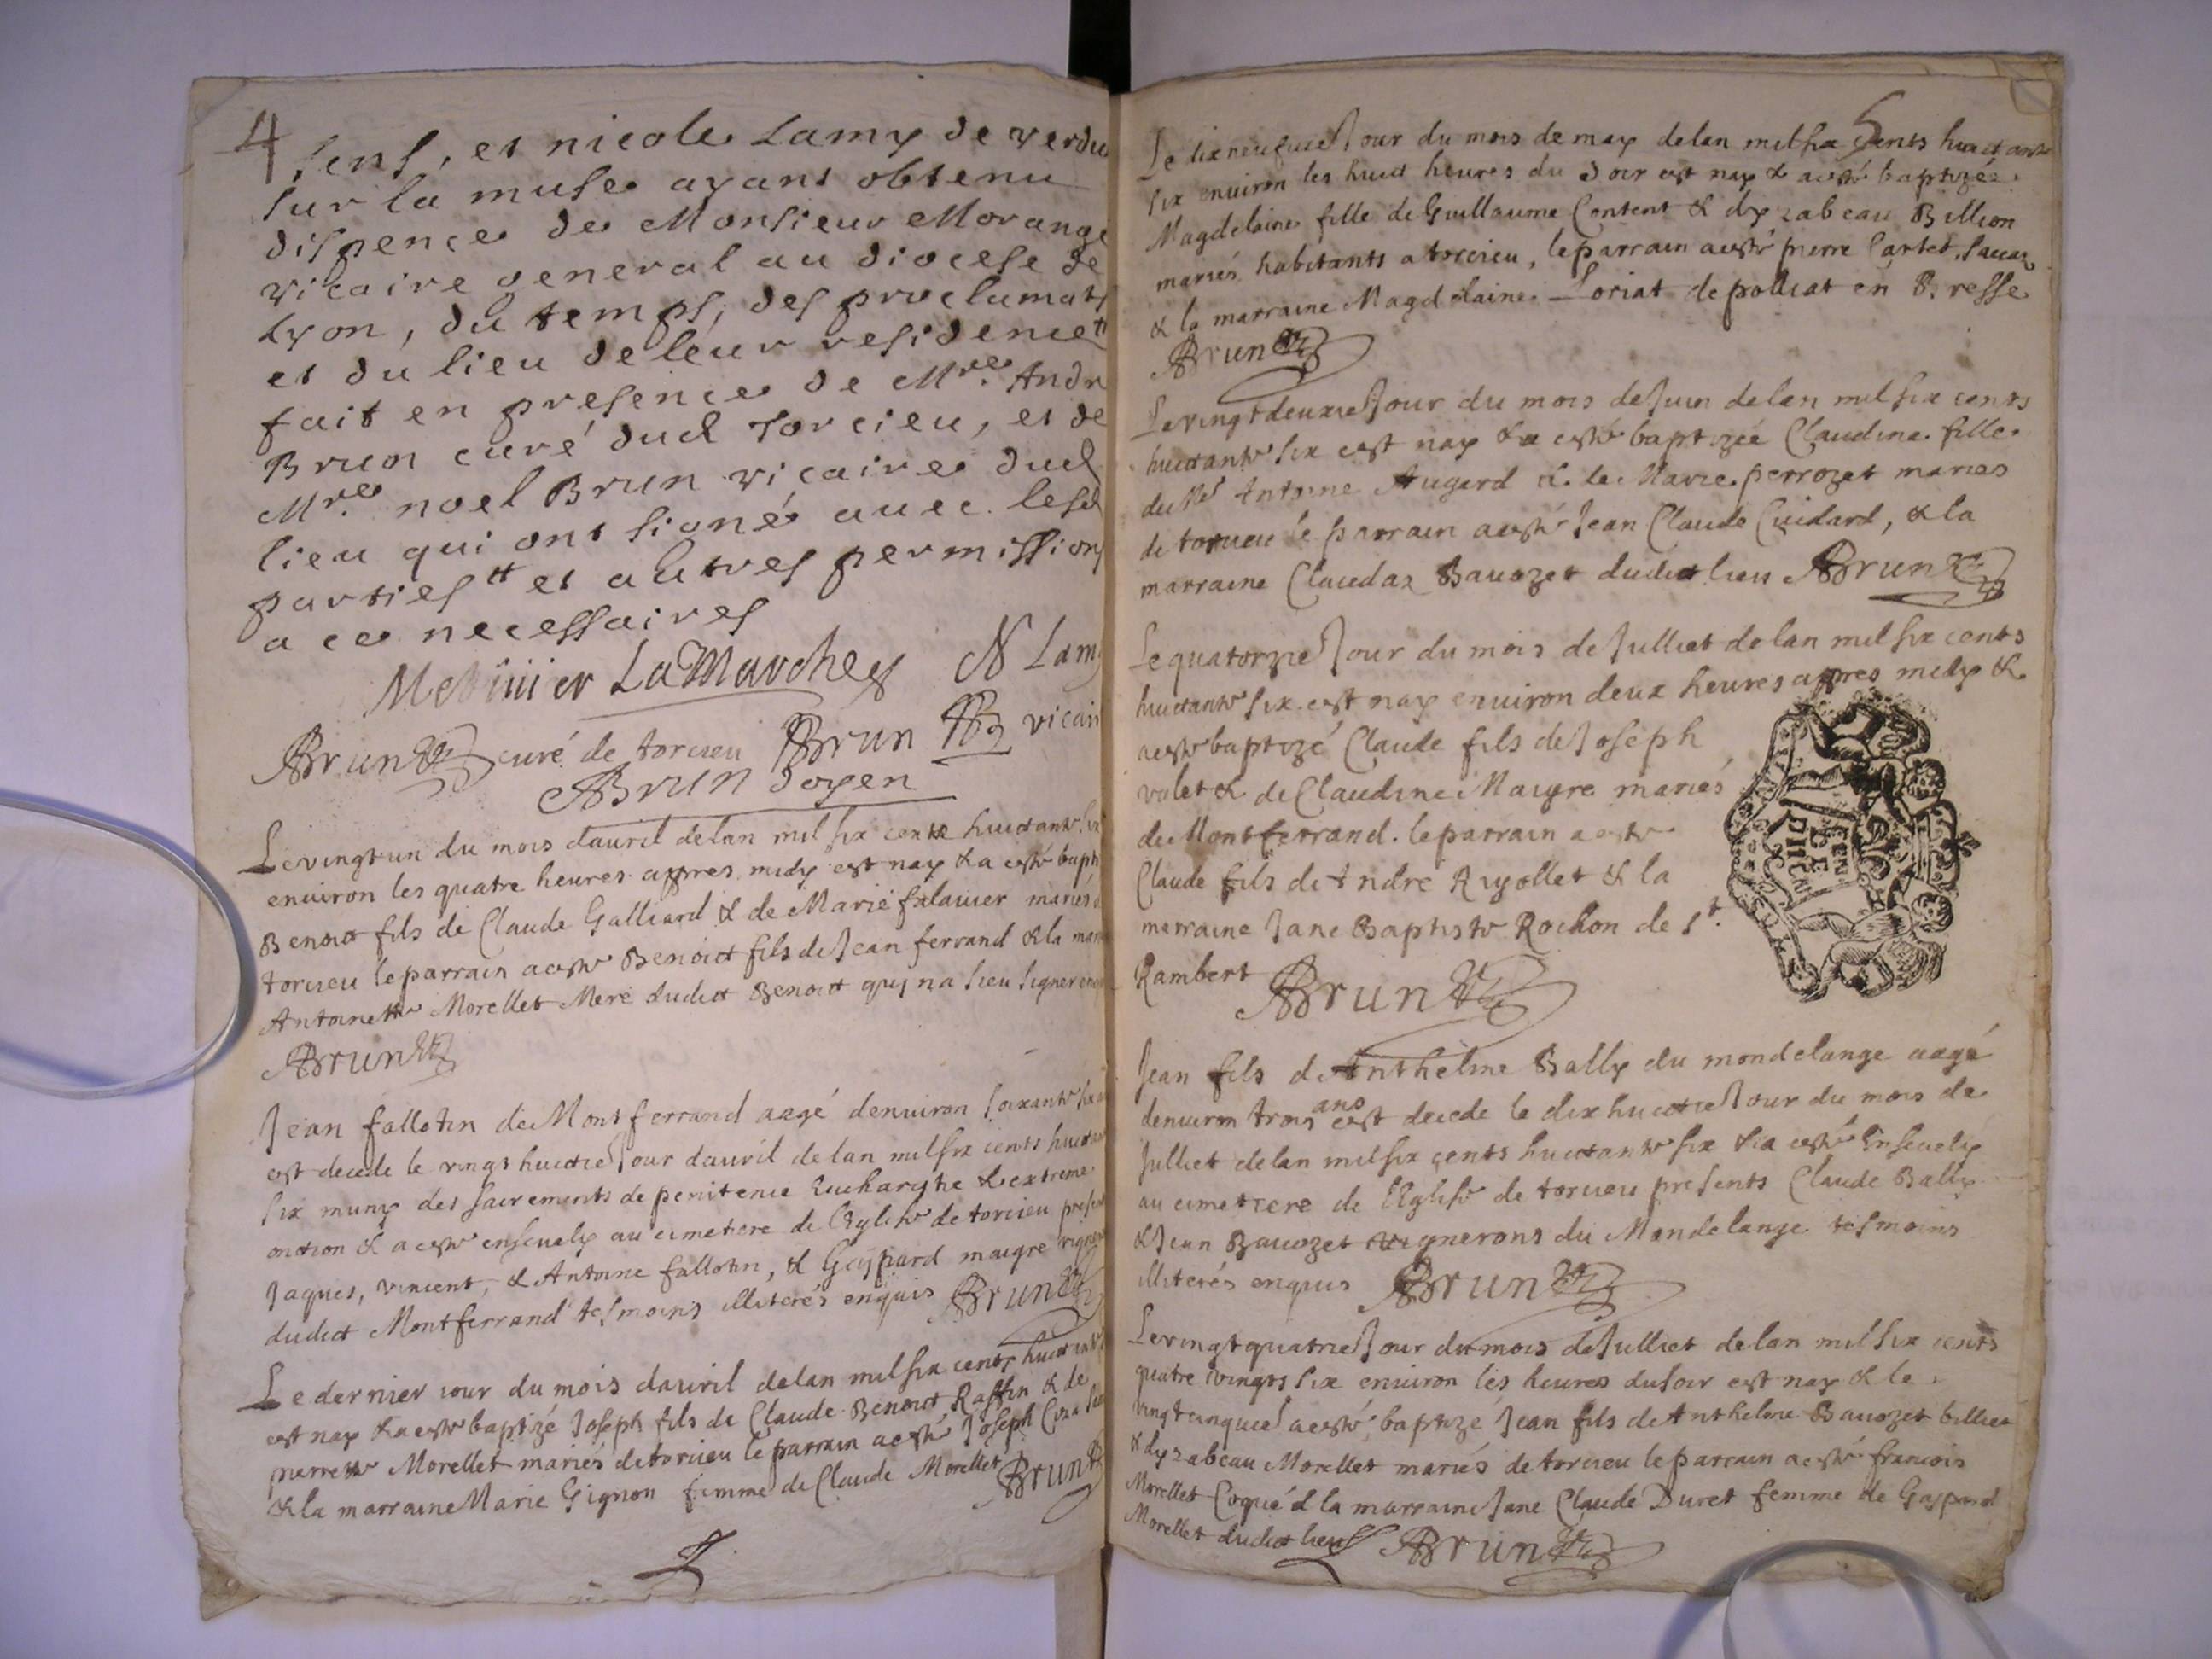 4
sens, et nicole Lamy de verdu
sur la muse ayant obtenu
dispence de Monsieur Morange
vicaire general au diocese de
Lyon, du temps, des proclamat
et du lieu de leur residence
fait en presence de Mre. Andr
Brun curé dud Torcieu, et de
Mre. noel Brun vicaire dud
lieu qui ont signé avec lesd
parties tt et autres permissions
a ce necessaires
LaMarche N Lam
Brun curé de torcieu Brun vicair
Brun doyen
Le vingt un du mois dauril de lan mil six cents huictante six
enuiron les quatre heures appres midy est nay & a esté bapti
Benoict fils de Claude Galliard & de Marie falauier mariés
torcieu le parrain a esté Benoict fils de Jean ferrand & la mar
Antoinette Morellet Mere dudict Benoict quj na sceu signer
Brun
Jean fallotin de Montferrand aagé denuiron soixante six
est decede le vingt huictie Jour dauril de lan mil six cents huictan
six muny des sacrements de penitence Eucharistie & extreme
onction & a esté enseuely au cimetiere de lEglise de torcieu presen
Jaques, vincent, & Antoine fallotin, & Gaspard maigre vigner
dudict Montferrand tesmoins illiterés enquis Brun
Le dernier iour du mois dauril de lan mil six cents huictante
est nay & a esté baptizé Joseph fils de Claude Benoict Raffin & de
pierrette Morellet mariés de torcieu le parrain a esté Joseph
& la marraine Marie Gignon femme de Claude Morellet Brun
5
Le dixneufuie Jour du mois de may de lan mil six cents huictante
six enuiron les huict heures du soir est nay & a esté baptizée
Magdelaine fille de Guillaume Content & dyzabeau Billion
mariés habitants a torcieu, le parrain a esté pierre
& la marraine Magdelaine Loriat de polliat en Bresse
Brun
Le vingt deuxie Jour du mois de Juin de lan mil six cents
huictante six est nay & a esté baptizée Claudine fille
du Antoine Augerd & de Marie perrozet mariés
de torcieu le parrain a esté Jean Claude Cuidard, & la
marraine Claudaz Bauozet dudict lieu Brun
Le quatorzie Jour du mois de Julliet de lan mil six cents
huictante six est nay enuiron deux heures appres midy &
a esté baptizé Claude fils de Joseph
volet & de Claudine Maigre mariés
de Montferrand. le parrain a esté
Claude fils de Andre Ruyollet & la
merraine Jane Baptiste Rochon de St.
Rambert Brun
Jean fils d Anthelme Bally du mondelange aagé
denuiron trois ans est decede le dix huictie Jour du mois de
Julliet de lan mil six cents huictante six & a esté Enseuely
au cimetiere de lEglise de torcieu presents Claude Bally
& Jean Bauozet vignerons du Mondelange tesmoins
illiterés enquis Brun
Le vingt quatrie Jour du mois de Julliet de lan mil six cents
quatre vingts six enuiron les heures du soir est nay & le
vingt cinquie a esté baptizé Jean fils de Anthelme Bauozet billiet
& dyzabeau Morellet mariés de torcieu le parrain a esté francois
Morellet Coque & la marraine Jane Claude Duret femme de Gaspard
Morellet dudict lieu Brun